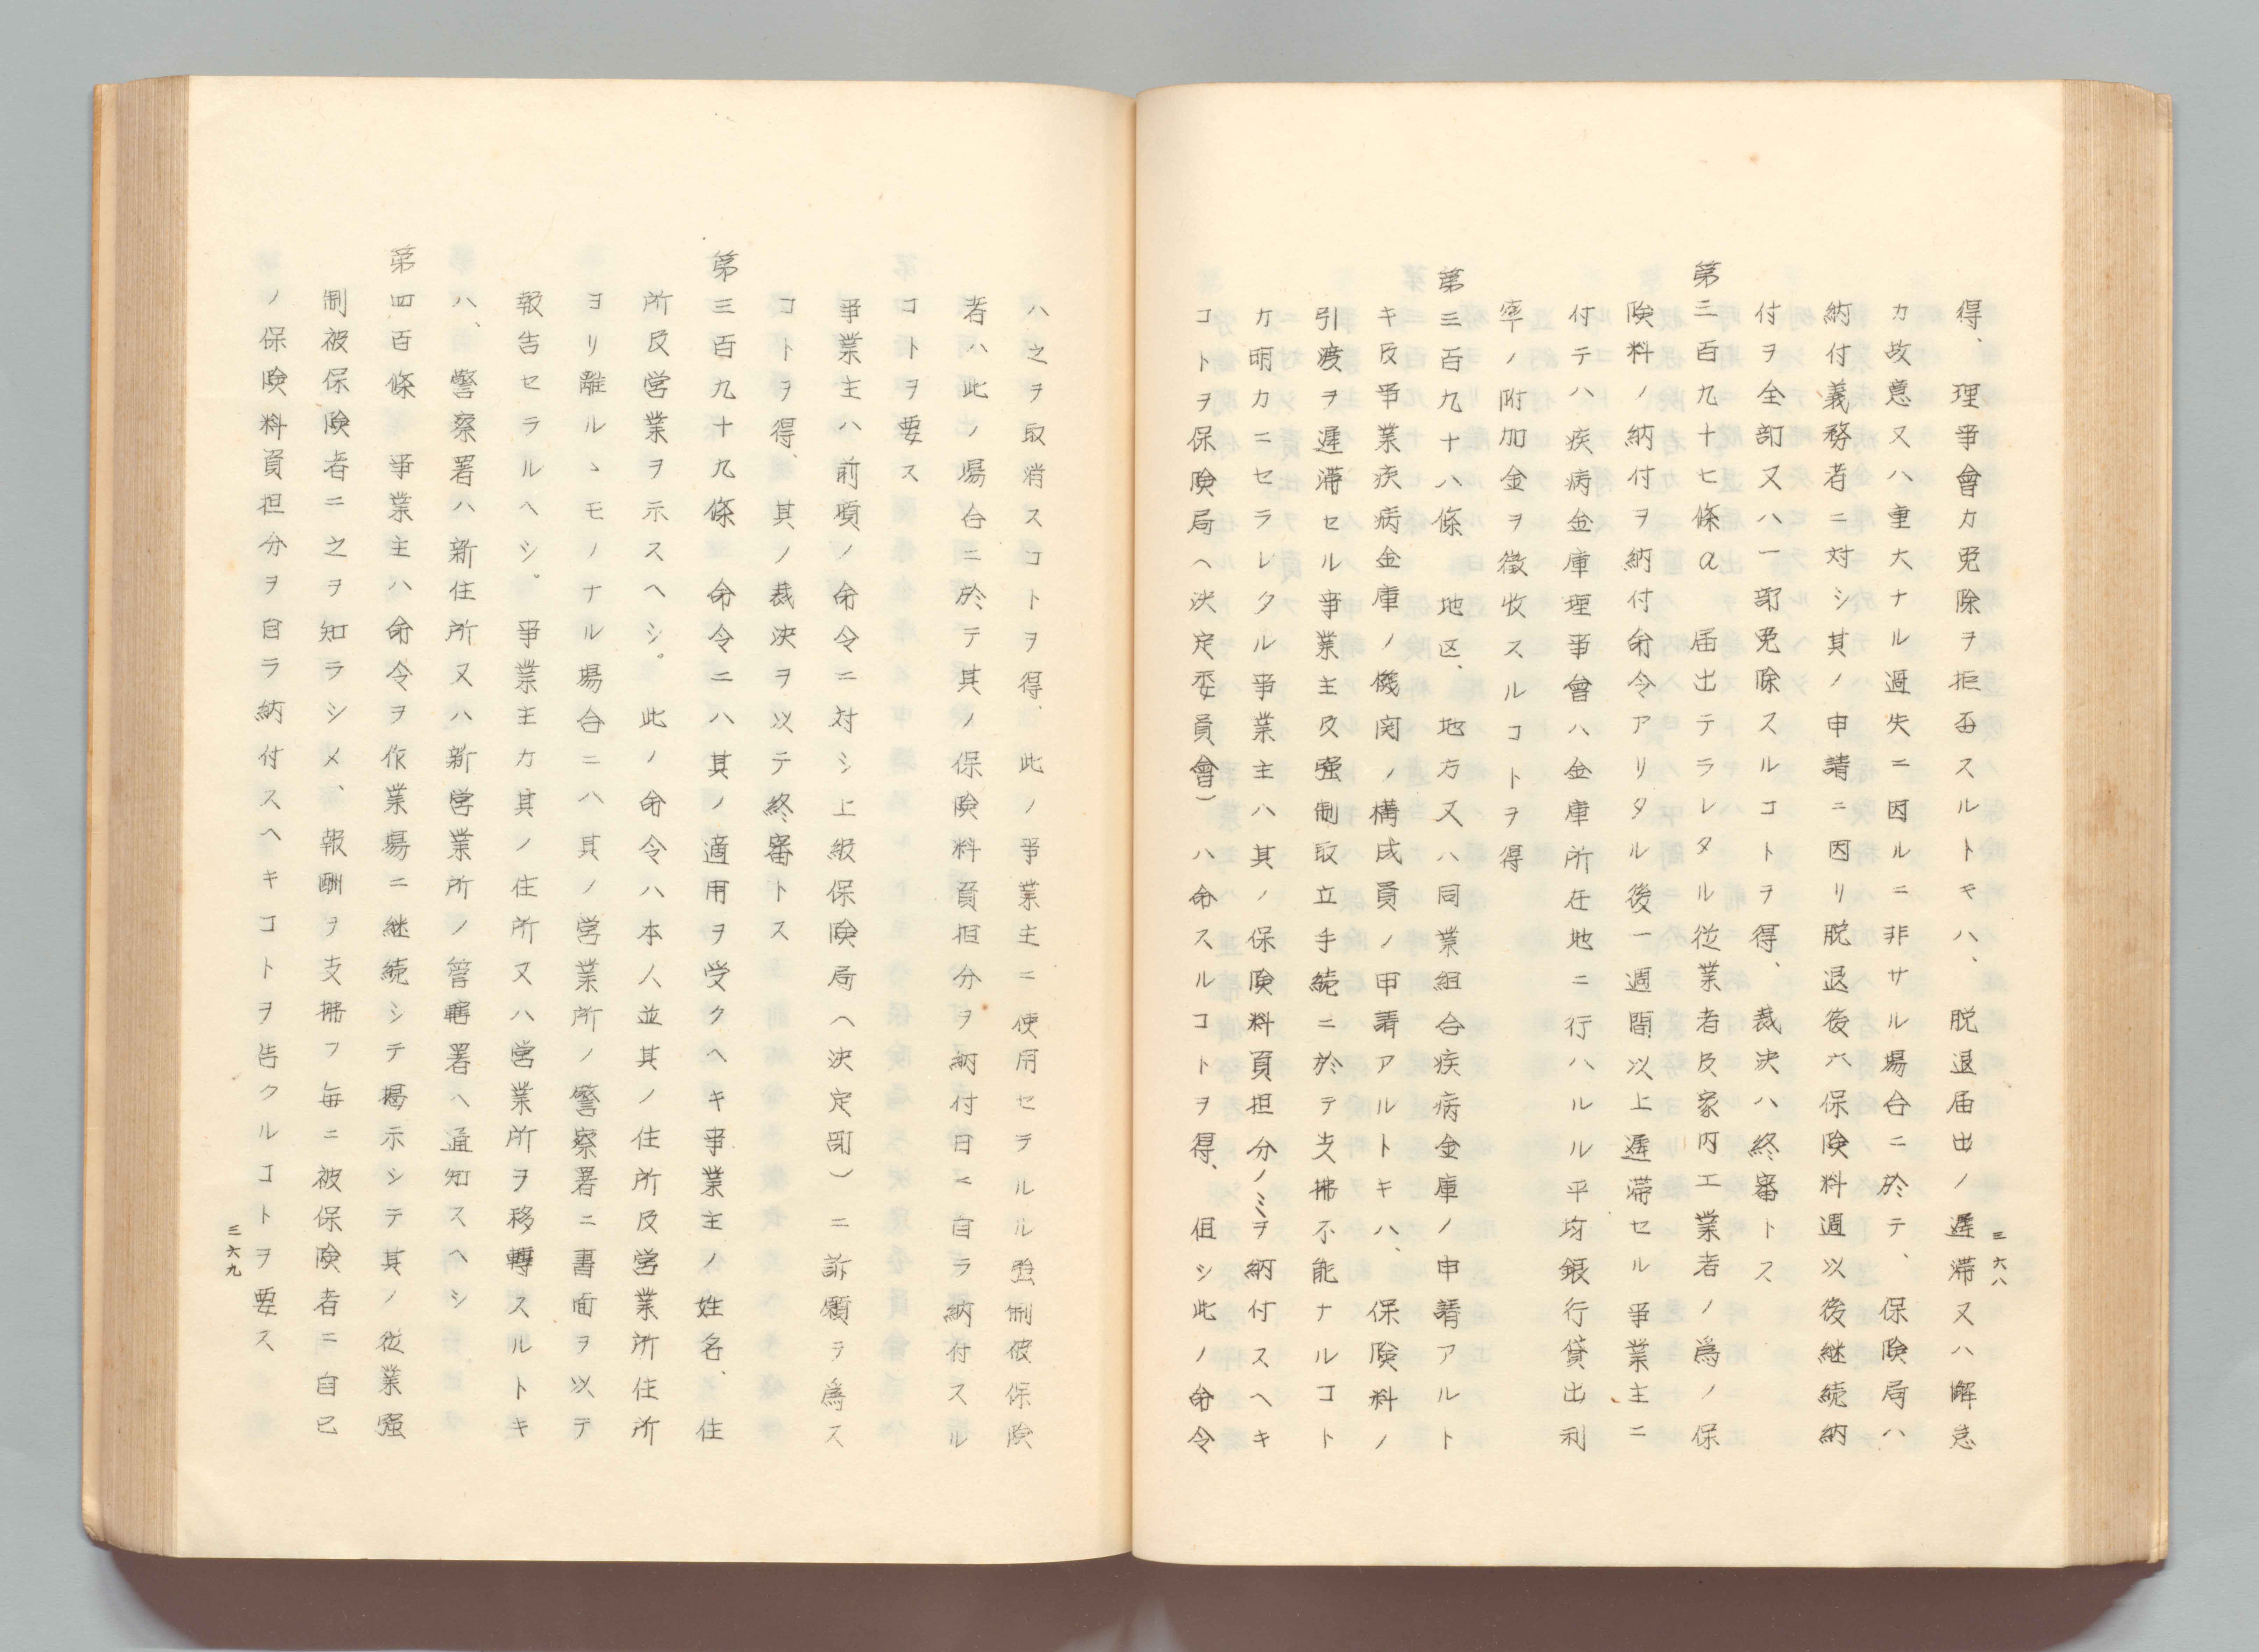 三六八
得、理事會カ免除ヲ拒否スルトキハ、脱退届出ノ遲滯又ハ懈怠
カ故意又ハ重大ナル過失ニ因ルニ非サル場合ニ於テ、保険局ハ
納付義務者ニ対シ其ノ申請ニ因リ脱退後六保険料週以後継続納
付ヲ全部又ハ一部免除スルコトヲ得、裁決ハ終審トス
第三百九十七條a 届出テラレタル従業者及家内工業者ノ爲ノ保
険料ノ納付ヲ納付命令アリタル後一週間以上遲滞セル事業主ニ
付テハ疾病金庫理事會ハ金庫所在地ニ行ハルル平均銀行貸出利
率ノ附加金ヲ徴收スルコトヲ得
第三百九十八條 地区、地方又ハ同業組合疾病金庫ノ申請アルト
キ及事業疾病金庫ノ機関ノ構成員ノ申請アルトキハ、保険料ノ
引渡ヲ遲滞セル事業主及强制取立手続ニ於テ支拂不能ナルコト
カ明カニセラレタル事業主ハ其ノ保険料負担分ノミヲ納付スヘキ
コトヲ保険局ヘ決定委員會）ハ命スルコトヲ得、但シ此ノ命令
ハ之ヲ取消スコトヲ得、此ノ事業主ニ使用セラルル强制被保険
者ハ此ノ場合ニ於テ其ノ保険料負担分ヲ納付日ニ自ラ納付スル
コトヲ要ス
事業主ハ前項ノ命令ニ対シ上級保険局ヘ決定部）ニ訴願ヲ爲ス
コトヲ得、其ノ裁決ヲ以テ終審トス
第三百九十九條 命令ニハ其ノ適用ヲ受クヘキ事業主ノ姓名、住
所及営業ヲ示スヘシ。此ノ命令ハ本人並其ノ住所及営業所住所
ヨリ離ルヽモノナル場合ニハ其ノ営業所ノ警察署ニ書面ヲ以テ
報告セラルヘシ。事業主カ其ノ住所又ハ営業所ヲ移轉スルトキ
ハ、警察署ハ新住所又ハ新営業所ノ管轄署ヘ通知スヘシ
第四百條 事業主ハ命令ヲ作業場ニ継続シテ揭示シテ其ノ従業强
制被保険者ニ之ヲ知ラシメ、報酬ヲ支拂フ毎ニ被保険者ニ自己
ノ保険料負担分ヲ自ラ納付スヘキコトヲ告クルコトヲ要ス
三六九